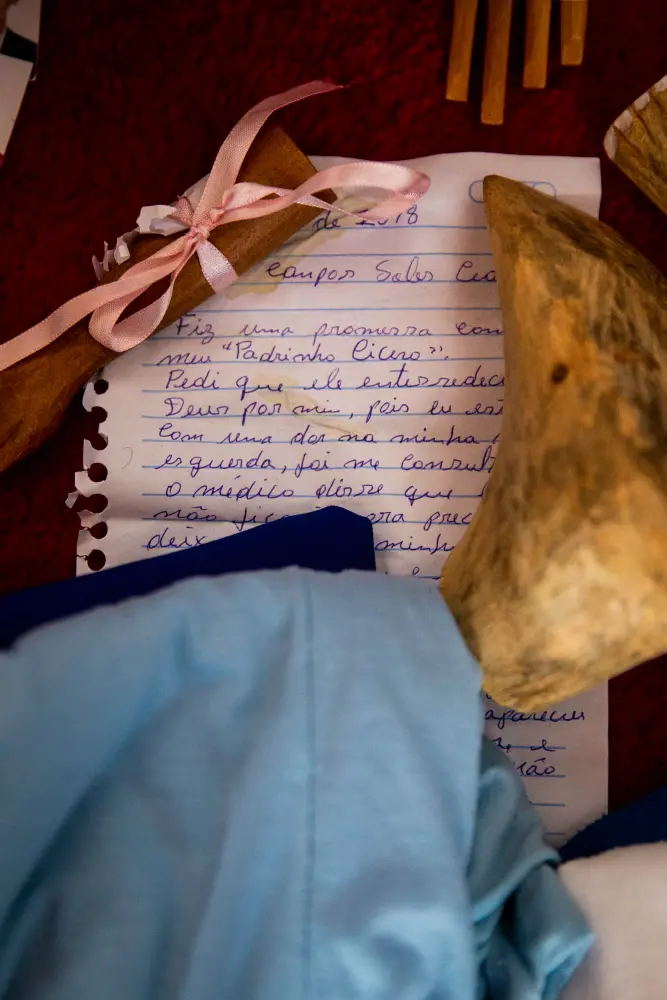 de 2018
campos Sales Cea
Fiz uma promessa com
meu "Padrinho Cícero".
Pedi que ele enterredec
Deus por mim, pois eu est
com uma dor na minha
esquerda, foi me consul
o médico disse que
não fic ora prec
deix minh
aparecer
e
não